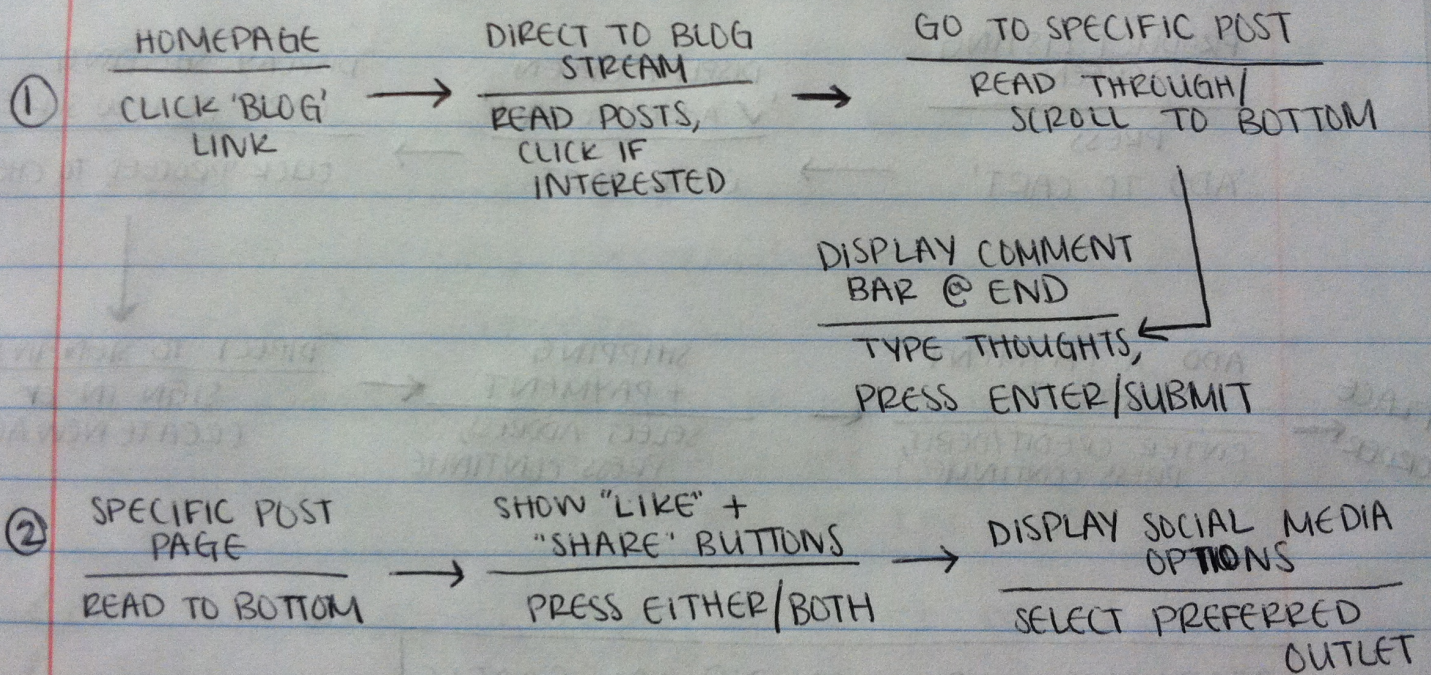 ①
HOMEPAGE
CLICK 'BLOG'
LINK
DIRECT TO BLOG
STREAM
READ POSTS,
CLICK IF
INTERESTED
GO TO SPECIFIC POST
READ THROUGH/
SCROLL TO BOTTOM
DISPLAY COMMENT
BAR @ END
TYPE THOUGHTS,
PRESS ENTER/SUBMIT
②
SPECIFIC POST
PAGE
READ TO BOTTOM
SHOW "LIKE" +
"SHARE" BUTTONS
PRESS EITHER/BOTH
DISPLAY SOCIAL MEDIA
OPTIONS
SELECT PREFERRED
OUTLET